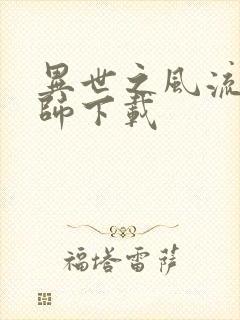 異世之風流
師下載
福塔雷薩